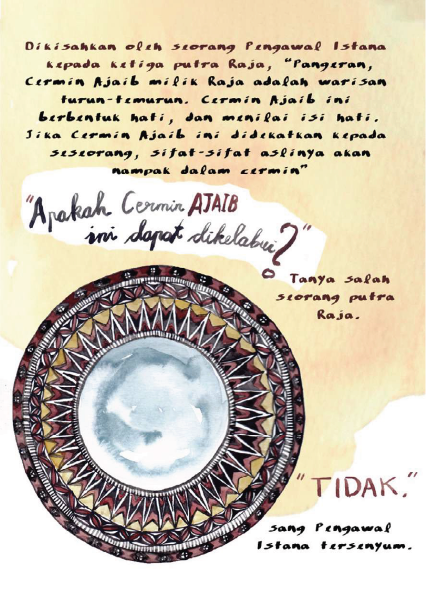 Dikisahkan oleh seorang Pengawal Istana
kepada ketiga putra Raja, "Pangeran,
Cermin Ajaib milik Raja adalah warisan
turun-temurun. Cermin Ajaib ini
berbentuk hati, dan menilai isi hati.
Jika Cermin Ajaib ini didekatkan kepada
seseorang, sifat-sifat aslinya akan
nampak dalam cermin"
"Apakah Cermin AJAIB
ini dapat dikelabui?"
Tanya salah
seorang putra
Raja.
"TIDAK."
sang Pengawal
Istana tersenyum.